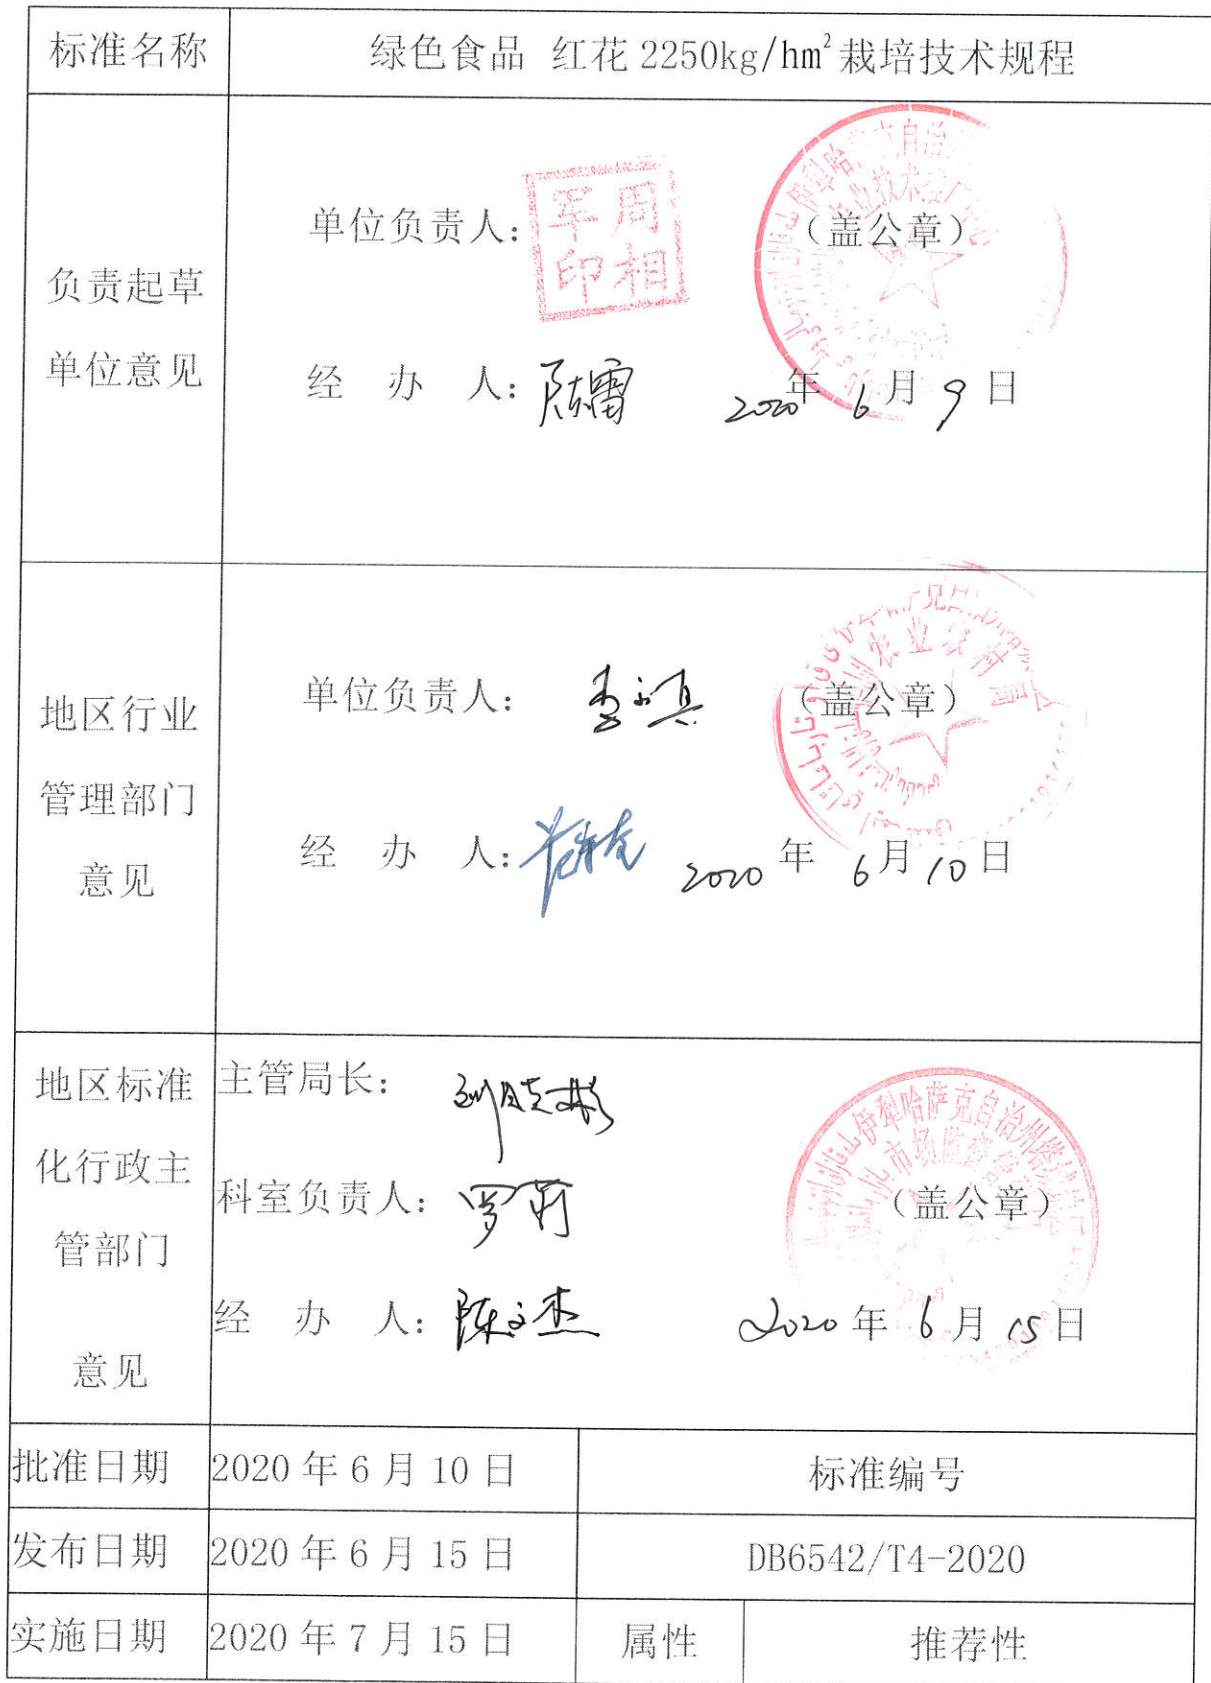 标准名称 绿色食品 红花 2250kg/hm²栽培技术规程
负责起草
单位意见
单位负责人：
周相
军印
（盖公章）
经 办 人：陈雷 2020年 6月 9日
地区行业
管理部门
意见
单位负责人：
（盖公章）
农业农村局
经 办 人： 2020年 6月10日
地区标准
化行政主
管部门
意见
主管局长：
科室负责人：罗莉
（盖公章）
伊犁哈萨克自治州塔城地区
市场监督管
经 办 人：陈文杰 2020年 6月15日
批准日期 2020年6月10日 标准编号
发布日期 2020年6月15日 DB6542/T4-2020
实施日期 2020年7月15日 属性 推荐性